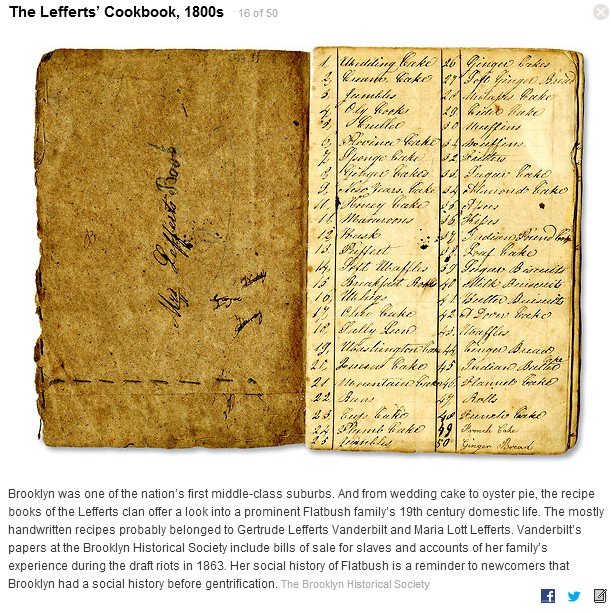 The Lefferts' Cookbook, 1800s 16 of 50
Mrs Lefferts Book
1, Wedding Cake 26 Ginger Cakes
2, Cream Cake 27 Soft Ginger Bread
3, Jumbles 28 Cake
4, Oly Cooks 29 Cider Cake
5, 30 Muffins
6, Province Cake 31 Muffins
7 Sponge Cake 32
8 Ginger Cakes 33 Sugar Cake
9 New Years Cake 34 Almond Cake
10 Honey Cake 35
11. Macaroons 36
12. Rusk 37 Indian Pound Cake
13 Puffert 38 Loaf Cake
14, Soft Waffles 39 Sugar Biscuits
15 Breakfast Rolls 40 Milk Biscuits
16, Whigs 41 Butter Biscuits
17 Cake 42 Cake
18 Sally Lunn 43 Waffles
19, Washington Cake 44 Ginger Bread
20 Queens Cake 45 Indian Batter Cake
21 Mountain Cake 46 Flannel Cake
22. Buns 47 Rolls
23, Cup Cake 48 Cake
24 Plumb Cake 49 French Cake
25 Jumbles 50 Ginger Bread
Brooklyn was one of the nation's first middle-class suburbs. And from wedding cake to oyster pie, the recipe
books of the Lefferts clan offer a look into a prominent Flatbush family's 19th century domestic life. The mostly
handwritten recipes probably belonged to Gertrude Lefferts Vanderbilt and Maria Lott Lefferts. Vanderbilt's
papers at the Brooklyn Historical Society include bills of sale for slaves and accounts of her family's
experience during the draft riots in 1863. Her social history of Flatbush is a reminder to newcomers that
Brooklyn had a social history before gentrification. The Brooklyn Historical Society